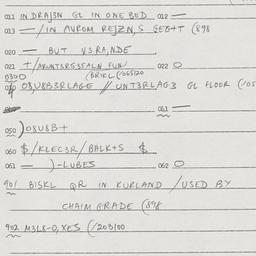 011 IN DRAJ3N GL IN ONE BED 012 —
013 — / IN AVROM REJZN,S GEG+T (898
020 — BUT V3RA,NDE
021 +/ARUNTSRE3FALN FUN 022 O
0300 (BRIEL (055120
O8U8B3RLAGE // UNT3RLAG3 GL FLOOR (
061 —
050 )O8U8B+
060 $ /KLEC3R/ BALK+S $
061 — )-LUBES 062 O
901 BISKL QR IN KURLAND /USED BY
CHAIM GRADE (898
902 M3L8-O,XES (/203100